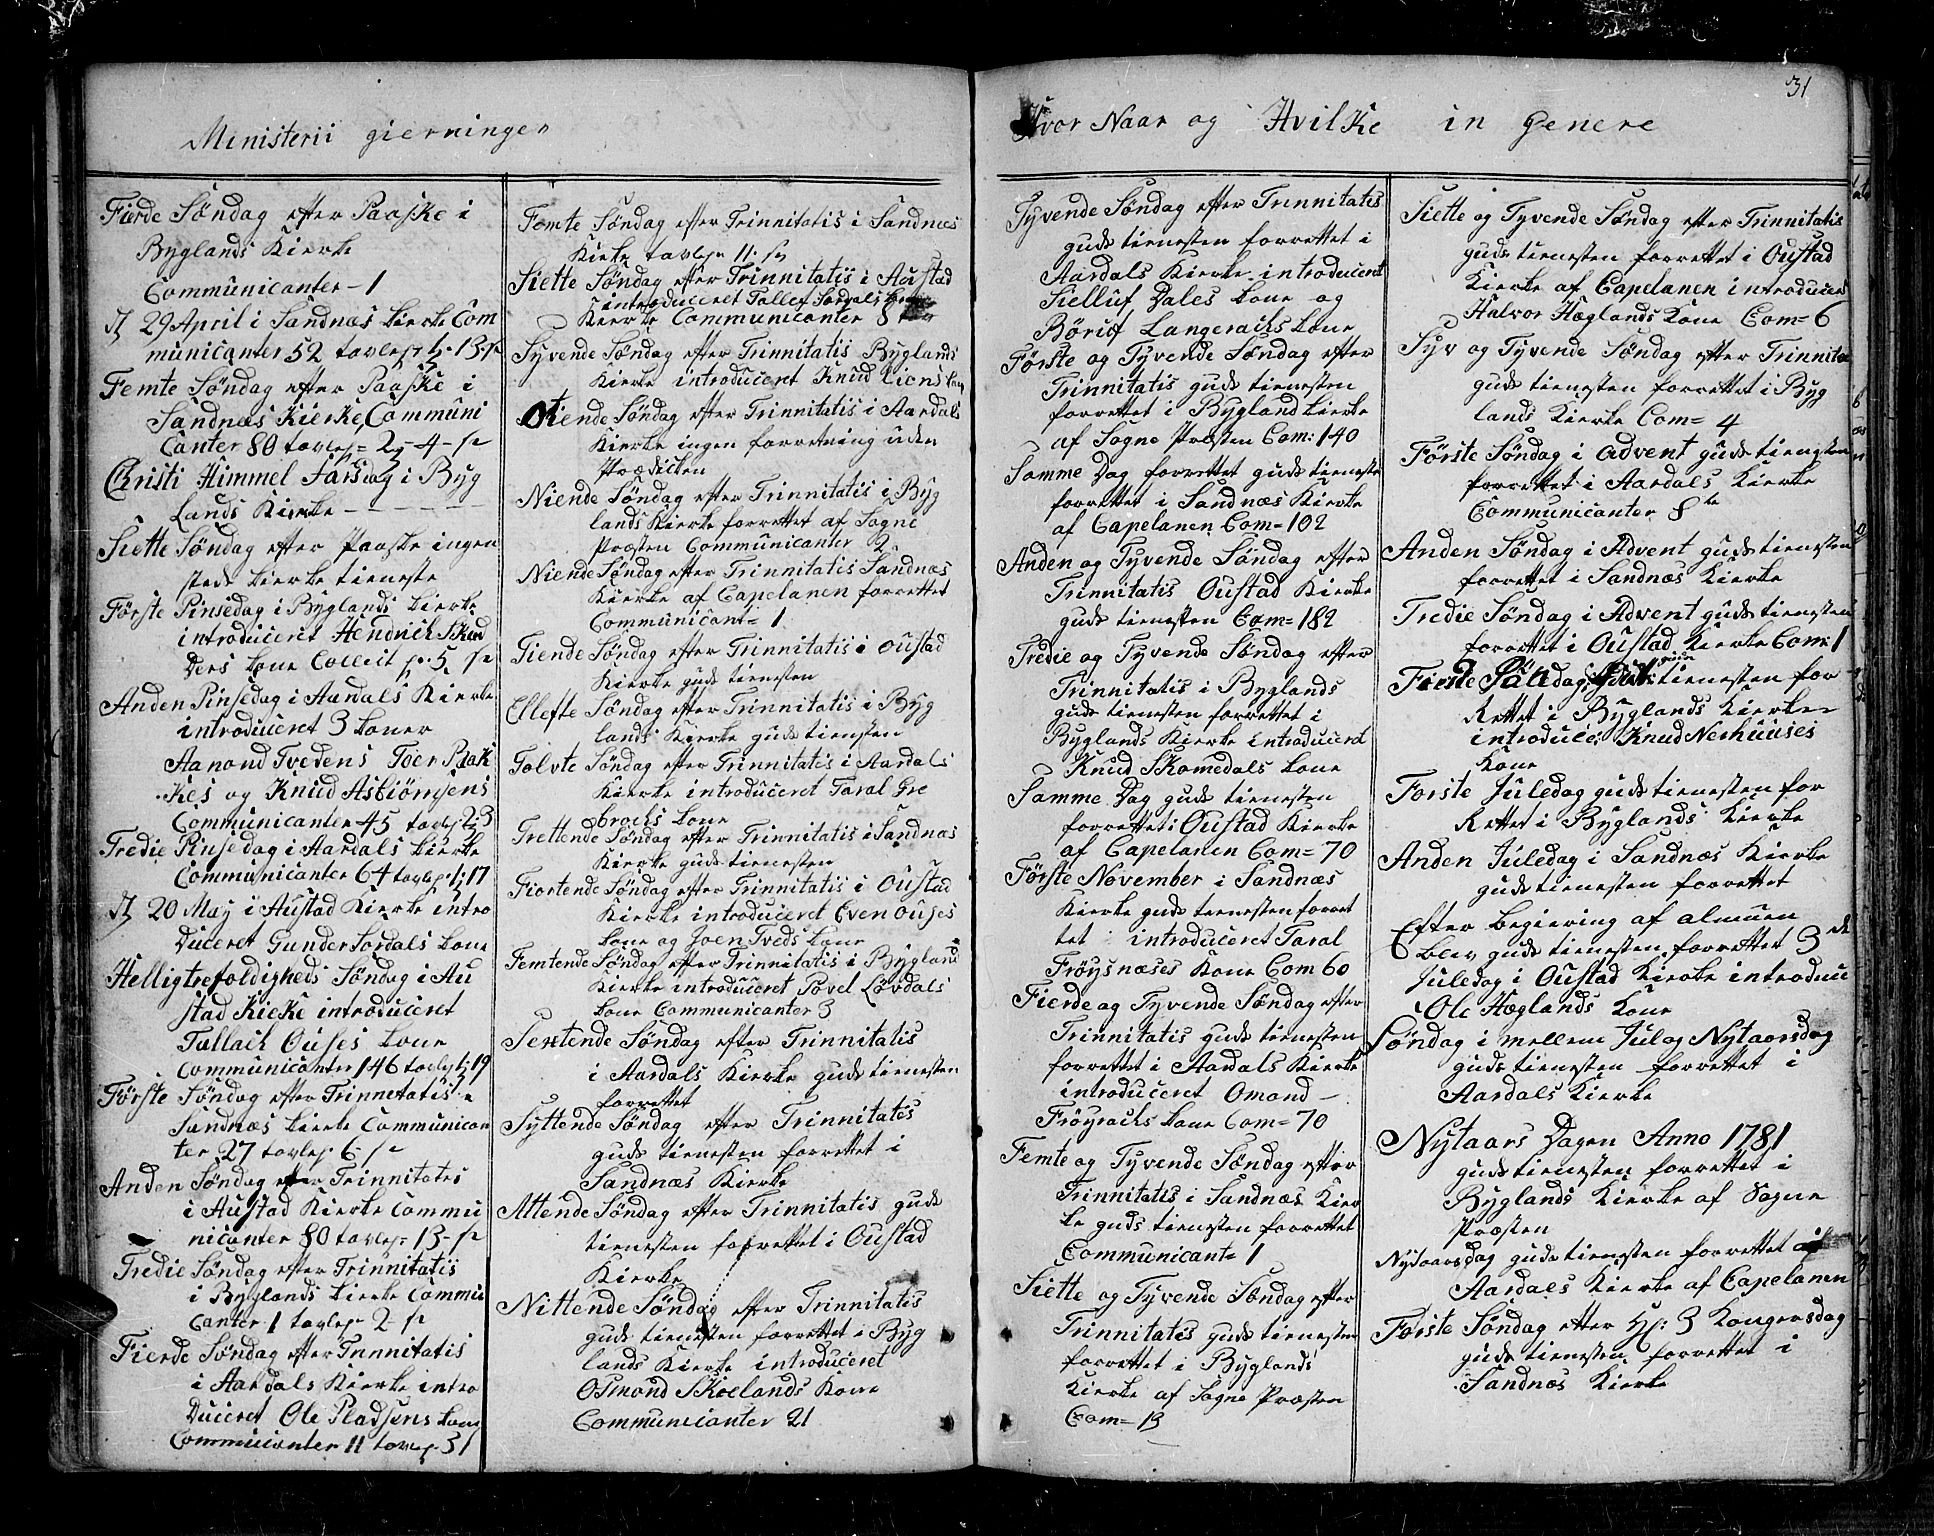 Ministerii gierninger
Fierde Søndag efter Paaske i
Byglands Kierke
Communicanter - 1
29 April i Sandnæs Kierke Com
municanter 52 tavlep 5. 13. s
Femte Søndag efter Paaske i
Sandnæs Kierke Communi
canter 80 tavlep = 2 - 4 - s
Christi Himmel Farsdag i Byg
lands Kierke - - - - -
Siette Søndag efter Paaske ingen
steds Kierke tieneste
Første Pinsedag i Byglands Kierke
introduceret Hendrich Skræd
ders Kone Collect p. 5
Anden Pinsedag i Aardals Kierke
introduceret 3 Koner
Aanond Tvedens Toer
Kes og Knud Asbiørnsens
Communicanter 45 tavlep 23
Tredie Pinsedag i Aardals Kierke
Communicanter 64 tavlep 17
20 May i Austad Kierke intro
duceret Gunder Jordals Kone
Helligtrefoldigheds Søndag i Au
stad Kierke introduceret
Tallach Ouses Kone
Communicanter 146 tavlep 19
Første Søndag efter Trinnitatis
Sandnæs Kierke Communican
ter 27 tavlep 6
Anden Søndag efter Trinnitatis
i Austad Kierke Commu
nicanter 80 tavlep 13 -
Tredie Søndag efter Trinnitatis
i Byglands Kierke Commu
canter 1 tavlep 2
Fierde Søndag efter Trinnitatis
i Aardals Kierke intro
duceret Ole Pladsens Kone
Commucanter 11 tavlep 31
Femte Søndag efter Trinnitatis i Sandnæs
Kierke tavlep 11.
Siette Søndag efter Trinnitatis i Austad
introduceret Tallef Jordals Kone
Kierke Communicanter 8
Syvende Søndag efter Trinnitatis Byglands
Kierke introduceret Knud Liens Kone
Otiende Søndag efter Trinnitatis i Aardals
Kierke ingen forretning uden
Prædicken
Niende Søndag efter Trinnitatis i Byg
lands Kierke forrettet af Sogne
Præsten Communicanter 2
Niende Søndag efter Trinnitatis Sandnæs
Kierke af Capelanen forrettet
Communicant = 1
Tiende Søndag efter Trinnitatis i Oustad
Kierke guds tienesten
Ellefte Søndag efter Trinnitatis i Byg
lands Kierke guds tienesten
Tolvte Søndag efter Trinnitatis i Aardals
Kierke introduceret Taral Gre
brochs Kone
Trettende Søndag efter Trinnitatis i Sandnæs
Kierke guds tienesten
Fiortende Søndag efter Trinnitatis i Oustad
Kierke introduceret Even Ouses
Kone og Joen Tveds Kone
Femtende Søndag efter Trinnitatis i Bygland
Kierke introduceret Povel Løvdals
Kone Communicanter 3
Sextende Søndag efter Trinnitatis
i Aardals Kierke guds tienesten
forrettet
Syttende Søndag efter Trinnitatis
guds tienesten forrettet i
Sandnæs Kierke
Attende Søndag efter Trinnitatis guds
tienesten forrettet i Oustad
Kierke
Nittende Søndag efter Trinnitatis
guds tienesten forrettet i Byg
lands Kierke introduceret
Osmond Skoelands Kone
Communicanter 21
31
Hvor Naar og Hvilke in Genere
Tyvende Søndag efter Trinnitatis
guds tienesten forrettet i
Aardals Kierke introduceret
Sielluf Dales Kone og
Børuf Langerachs Kone
Første og Tyvende Søndag efter
Trinnitatis guds tienesten
forrettet i Bygland Kierke
af Sogne Præsten Com: 140
Samme Dag forrettet guds tieneste
forrettet i Sandnæs Kierke
af Capelanen Com = 102
Anden og Tyvende Søndag efter
Trinnitatis Oustad Kierke
guds tienesten Com = 182
Tredie og Tyvende Søndag efter
Trinnitatis i Byglands
guds tienesten forrettet i
Byglands Kierke introduceret
Knud Skomedals Kone
Samme Dag guds tienesten
forrettet i Oustad Kierke
af Capelanen Com = 70
Første November i Sandnæs
Kierke guds tienesten forret
tet introduceret Taral
Frøysnæses Kone Com 60
Fierde og Tyvende Søndag efter
Trinnitatis guds tienesten
forrettet i Aardals Kierke
introduceret Omond -
Frøyrachs Kone Com = 70
Femte og Tyvende Søndag efter
Trinnitatis i Sandnæs Kier
ke guds tienesten forrettet
Communicant = 1
Siette og Tyvende Søndag efter
Trinnitatis guds tienesten
forrettet i Byglands
Kierke af Sogne Præsten
Com = 13
Siette og Tyvende Søndag efter Trinnitatis
guds tienesten forrettet i Oustad
Kierke af Capelanen introducer
Halvor Hæglands Kone Com = 6
Syv og Tyvende Søndag efter Trinnita
guds tienesten forrettet i Byg
lands Kierke Com = 4
Første Søndag i Advent guds tienesten
forrettet i Aardals Kierke
Communicanter 8te
Anden Søndag i Advent guds tienesten
forrettet i Sandnæs Kierke
Tredie Søndag i Advent guds tienesten
forrettet i Oustad Kierke Com: 1
guds tienesten for
Rettet i Byglands Kierke
introduce: Knud Nerhuuses
Kone
Forste Juledag guds tienesten for
Rettet i Byglands Kierke
Anden Juledag i Sandnæs Kierke
guds tienesten forrettet
Efter begiering af almuen
blev guds tienesten forrettet 3de
Juledag i Oustad Kierke introduce
Ole Hæglands Kone
Søndag i mellem Jul og Nytaarsdag
guds tienesten forrettet i
Aardals Kierke
Nytaars Dagen Anno 1781
guds tienesten forrettet i
Byglands Kierke af Sogne
Præsten
Nytaarsdag guds tienesten forrettet
Aardals Kierke af Capelanen
Første Søndag efter H: 3 Kongersdag
guds tienesten forrettet i
Sandnæs Kierke